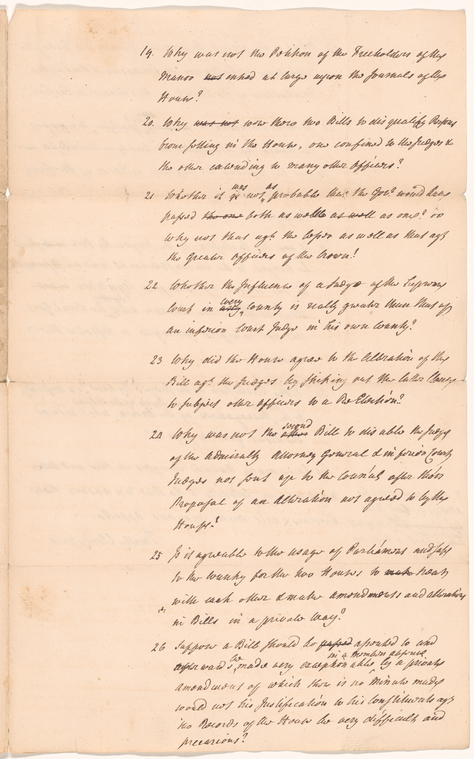 19. Why was not the Petition of the Freeholders of the
Manor not entred at large upon the Journals of the
House?
20. Why was not were there two Bills to disqualify Persons
from sitting in the House, one confined to the Judges &
the other extending to many other Officers?
21 Whether it was not as probable that the Govr. would have
passed the one both as well as well as one? or
why not that agt. the lesser as well as that agt.
the Greater Officers of the Crown?
22 Whether the Influence of a Judge of the Supreme
Court in every County is really greater than that of
an inferior Court Judge in his own County?
23 Why did the House agree to the Alteration of the
Bill agt. the Judges by striking out the latter Clause
to subject other Officers to a Re Election?
24 Why was not the second Bill to disable the Judge
of the Admiralty Attorney General & inferior Court
Judges not sent up to the Council after their
Proposal of an Alteration not agreed to by the
House?
25 Is it agreable to the usage of Parliament
to the for the two Houses to make treat
with each other & make amendments and alterations
in Bills in a private Way?
26 Suppose a Bill should be passed assented to and
afterwards be made very exceptionable in a members absence by a private
amendment of which there is no Minute made
would not his Justification to his Constituents agt
no Records of the House be very difficult and
precarious?